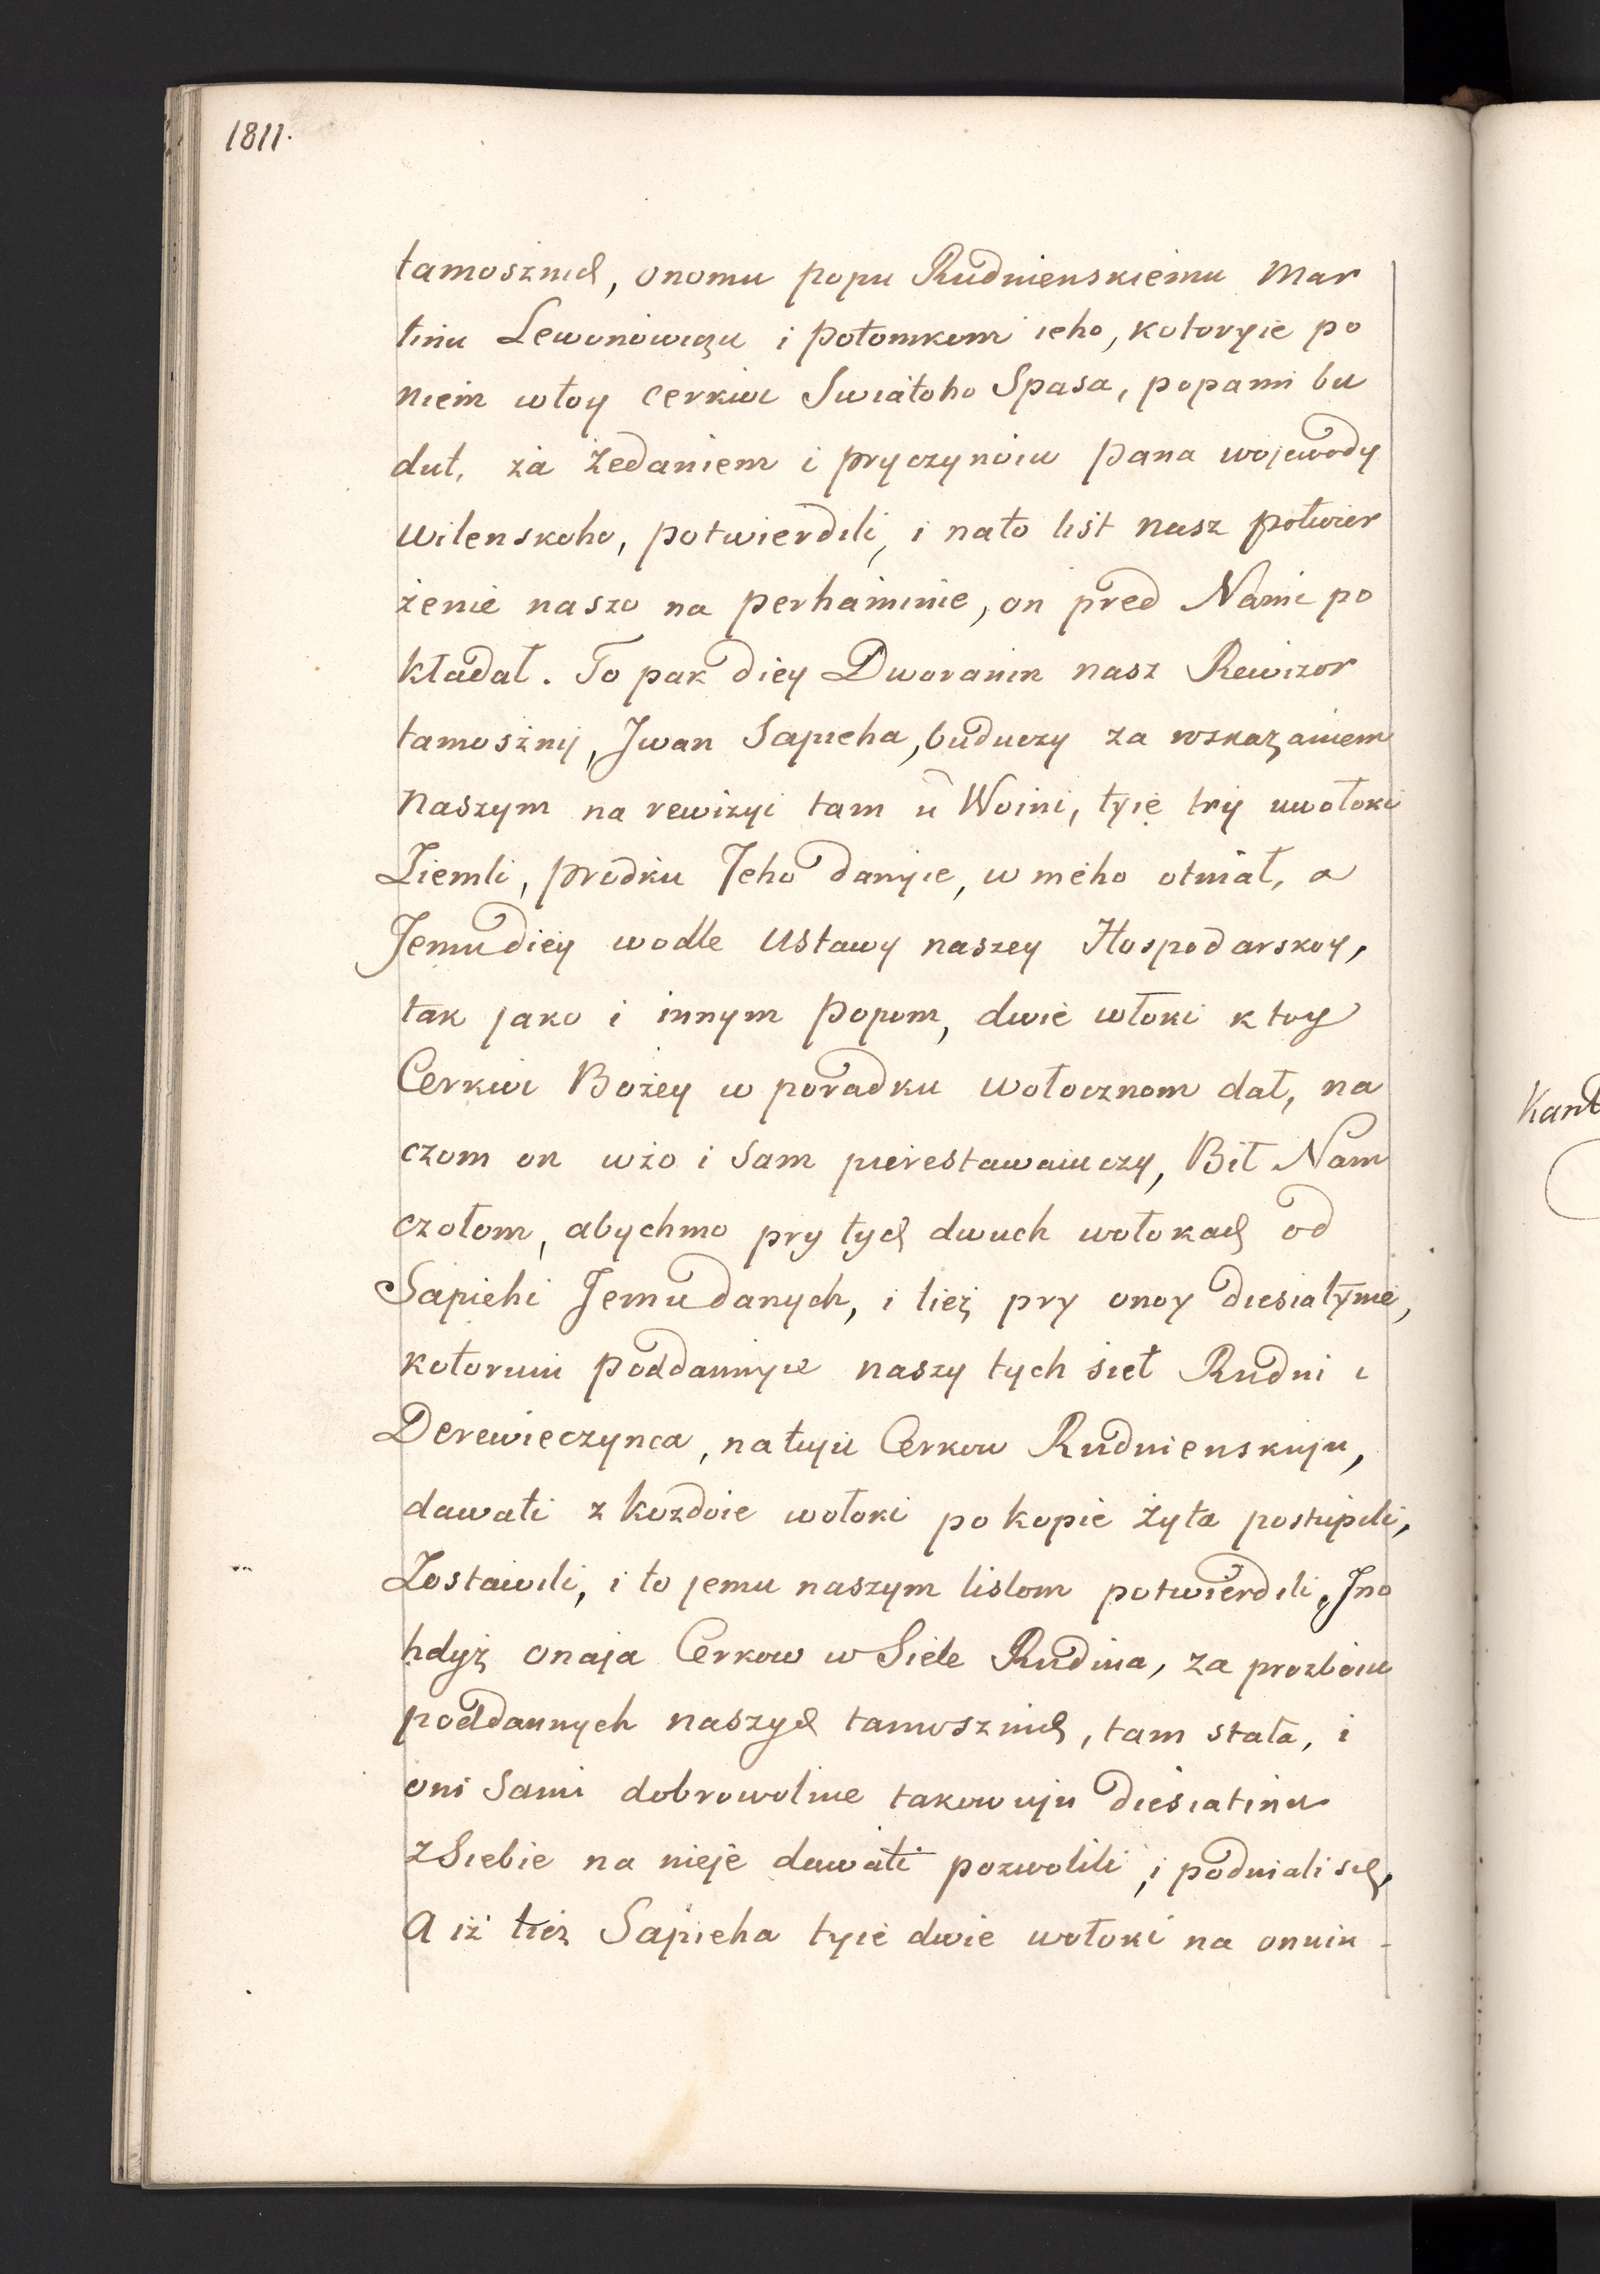 1811.
tamosznich, onomu popu Rudnienskiemu Mar
tinu Lewonowiczu i potomkom ieho, kotoryie po
niem wtoy cerkwi Swiatoho Spasa, popami bu
dut, za żedaniem i pryczynoiu pana wojewody
wilenskoho, potwierdili, i nato list nasz potwier
żenie naszo na perhaminie, on pred Nami po
kładał. To pak diey Dworanin nasz Rewizor
tamosżnij, Jwan Sapieha, buduczy za wskazaniem
naszym na rewizyi tam u Woini, tyie try uwołoki
Ziemli, prodku Jeho danyie, w nieho otniał, a
Jemu diey wodle Ustawy naszey Hospodarskoy,
tak jako i innym popom, dwie włoki k toy
Cerkwi Bożey w poradku wołocznom dał, na
czom on wżo i sam pierestawaiuczy, Bił Nam
czołom, abychmo pry tych dwuch wołokach od
Sapiehi Jemu danych, i tież pry onoy diesiatynie,
kotoruiu poddannyie naszy tych sieł Rudni i
Derewieczynca, na tuju Cerkow Rudnienskuju,
dawati z kożdoie wołoki po kopie żyta postupili,
Zostawili, i to jemu naszym listom potwierdili, Jno
hdyż onaja Cerkow w Siele Rudnia, za prozboiu
poddannych naszych tamosznich, tam stała, i
oni Sami dobrowolnie takowuju diesiatinu
z Siebie na nieje dawati pozwolili, i podniali sie,
A iż tież Sapieha tyie dwie wołoki na onuiu -
Kant